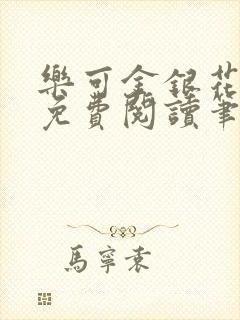 樂可金銀花
免費閱讀筆
馬寧袁